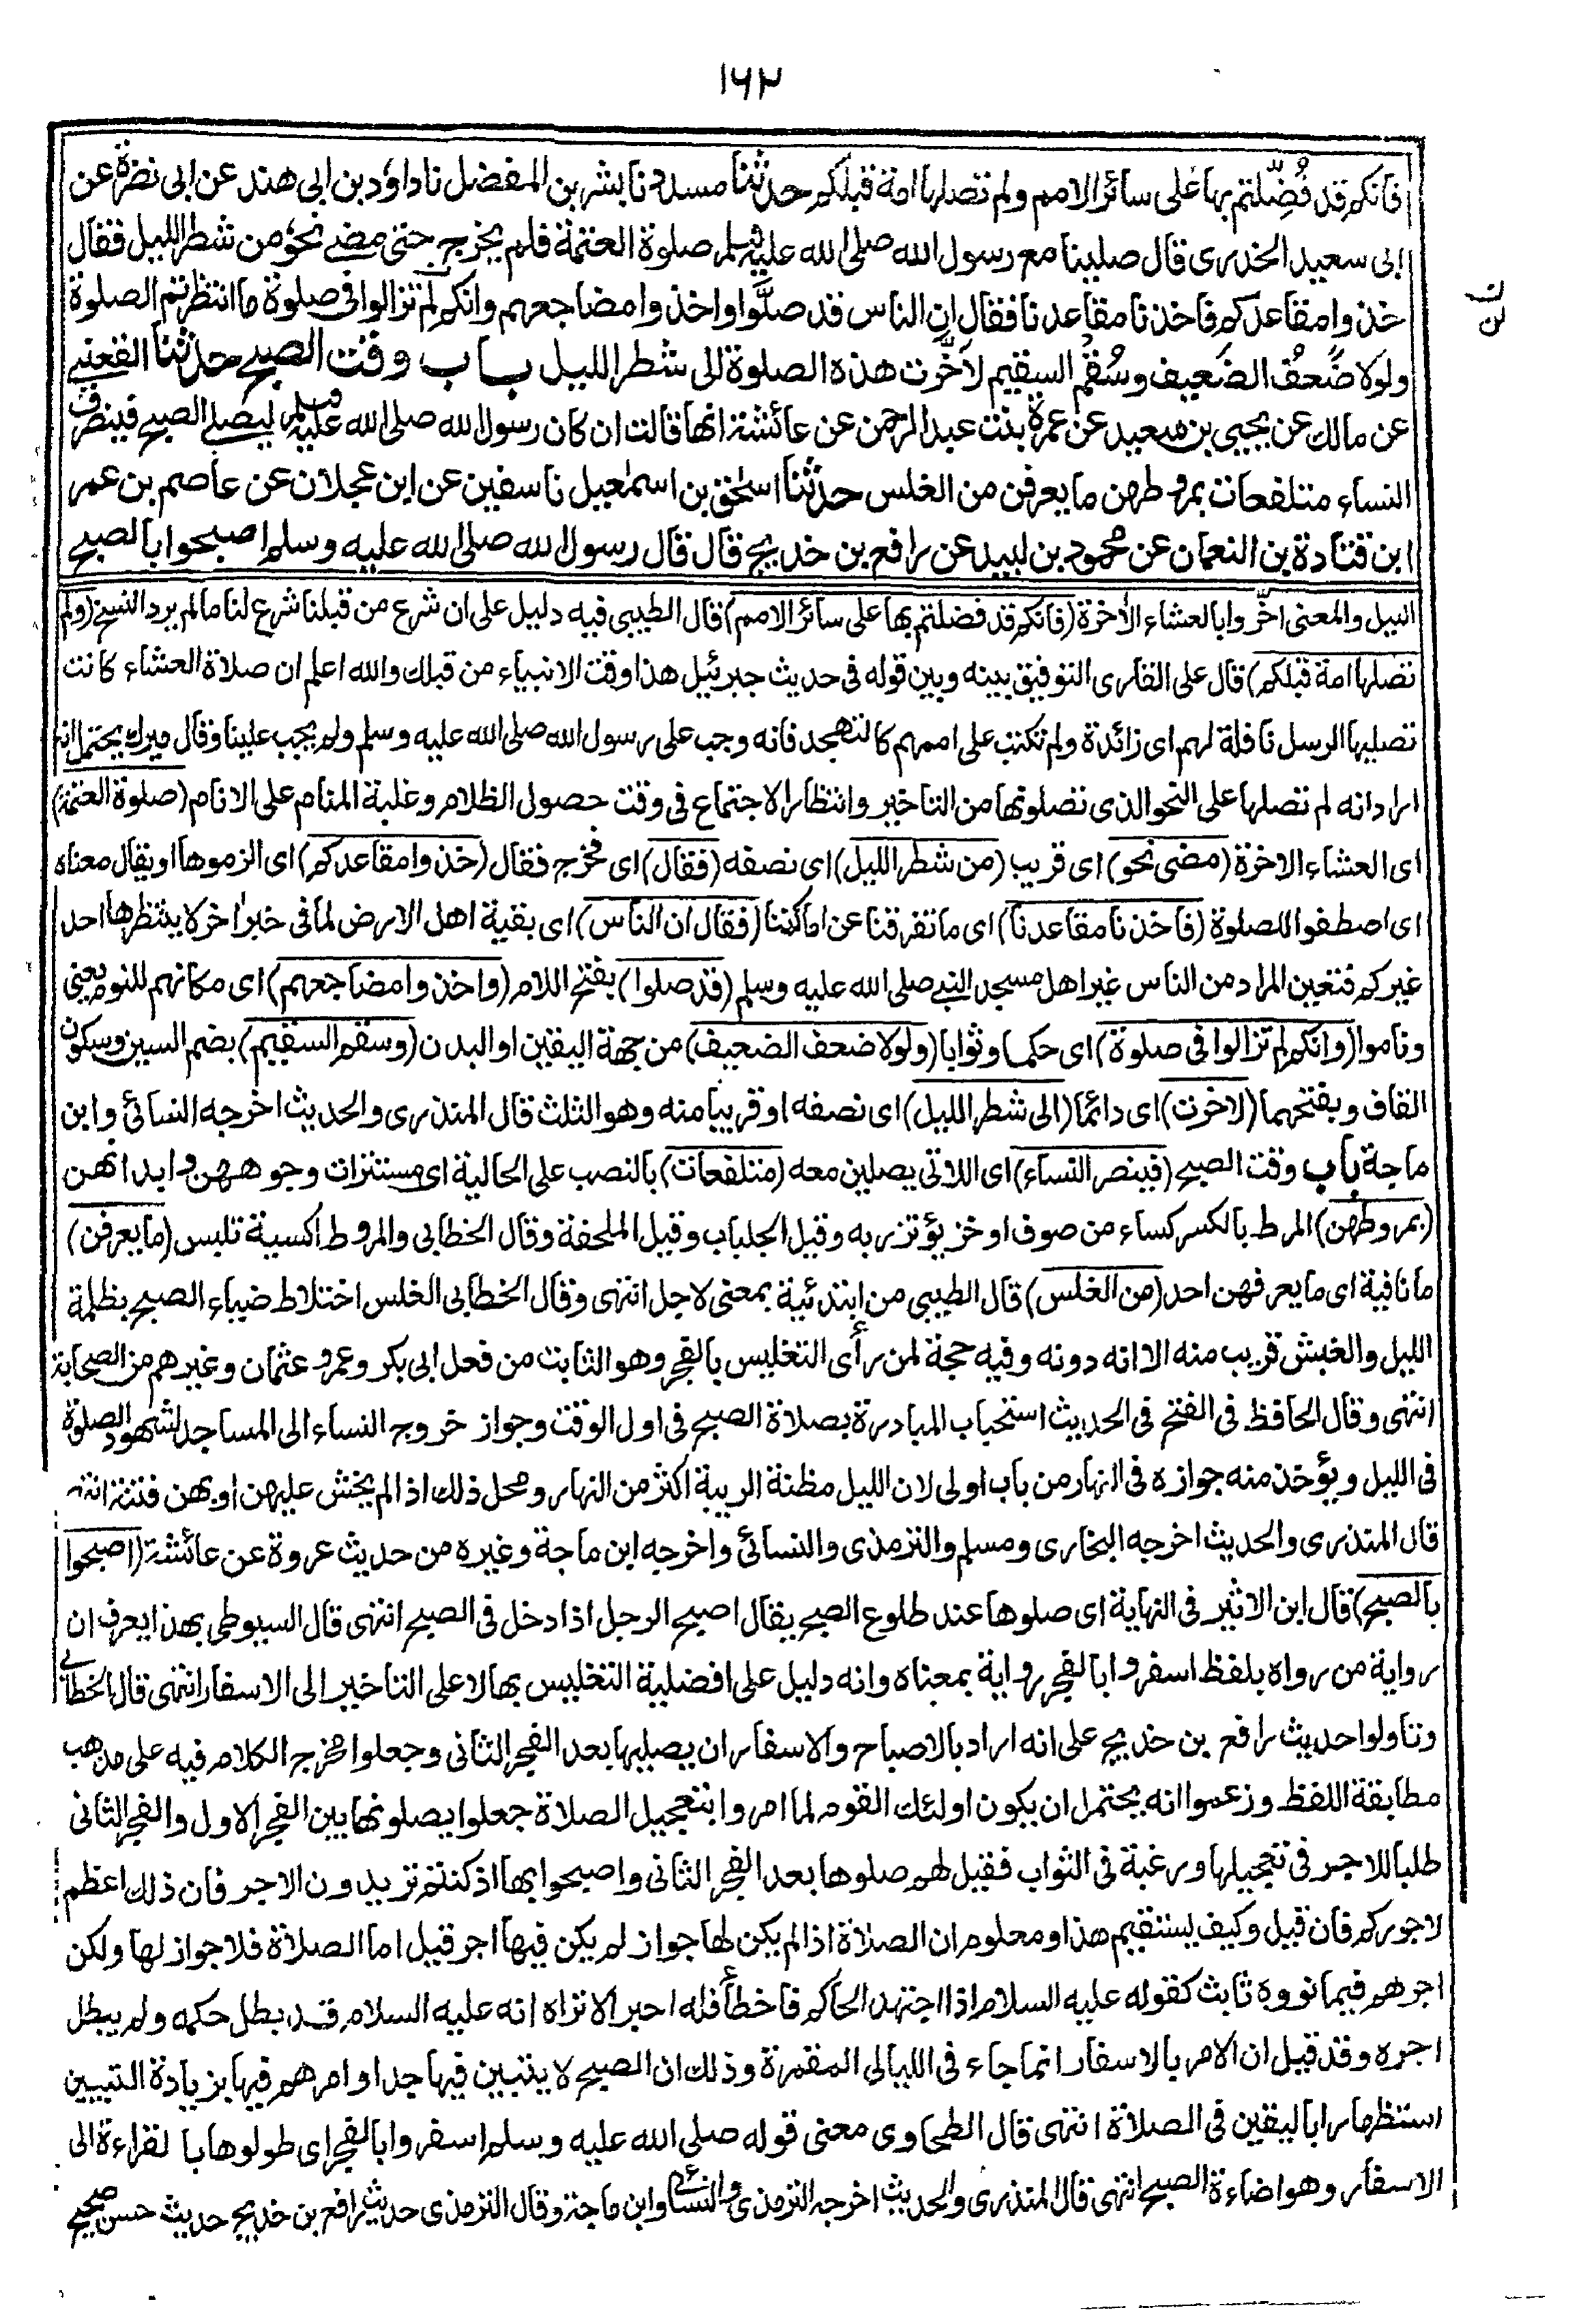 ۱۶۲
فانكم قد فُضِّلتم بها على سائر الامم ولم تصلها امة قبلكم حدثنا مسدد نا بشر بن المفضل نا داؤد بن ابى هند عن ابى نضرة عن
ابى سعيد الخدرى قال صلينا مع رسول الله صلى الله عليه وسلم صلوة العتمة فلم يخرج حتى مضى نحوٌ من شطر الليل فقال
خذوا مقاعدكم فاخذنا مقاعدنا فقال ان الناس قد صلَّوا واخذوا مضاجعهم وانكم لم تزالوا فى صلوة ما انتظرتم الصلوة
ولولا ضَعفُ الضعيف وسُقْم السقيم لاَخَّرت هذه الصلوة الى شطر الليل باب وقت الصبح حدثنا القعنبى
عن مالك عن يحيى بن سعيد عن عمرة بنت عبد الرحمن عن عائشة انها قالت ان كان رسول الله صلى الله عليه وسلم ليصلى الصبح فينصرف
النساء متلفعات بمروطهن ما يعرفن من الغلس حدثنا اسحق بن اسمعيل نا سفين عن ابن عجلان عن عاصم بن عمر
ابن قتادة بن النعمان عن محمود بن لبيد عن رافع بن خديج قال قال رسول الله صلى الله عليه وسلم اصبحوا بالصبح
الليل والمعنى اخّروا بالعشاء الأخرة (فانكم قد فضلتم بها على سائر الامم) قال الطيبى فيه دليل على ان شرع من قبلنا شرع لنا ما لم يرد النسخ (ولم
تصلها امة قبلكم) قال على القارى التوفيق بينه وبين قوله فى حديث جبرئيل هذا وقت الانبياء من قبلك والله اعلم ان صلاة العشاء كانت
تصليها الرسل نافلة لهم اى زائدة ولم تكتب على اممهم كالتهجد فانه وجب على رسول الله صلى الله عليه وسلم ولم يجب علينا وقال ميرك يحتمل انه
اراد انه لم تصلها على النحو الذى تصلونها من التاخير وانتظار الاجتماع فى وقت حصول الظلام وغلبة المنام على الانام (صلوة العتمة)
اى العشاء الاخرة (مضى نحو) اى قريب (من شطر الليل) اى نصفه (فقال) اى فخرج فقال (خذوا مقاعدكم) اى الزموها او يقال معناه
اى اصطفوا للصلوة (فاخذنا مقاعدنا) اى ما تفرقنا عن اماكننا (فقال ان الناس) اى بقية اهل الارض لما فى خبر اخر لا ينتظرها احد
غيركم فتعين المراد من الناس غير اهل مسجد النبى صلى الله عليه وسلم (قد صلوا) بفتح اللام (واخذوا مضاجعهم) اى مكانهم للنوم يعنى
وناموا (وانكم لم تزالوا فى صلوة) اى حكما وثوابا (ولولا ضعف الضعيف) من جهة اليقين او البدن (وسقم السقيم) بضم السين وسكون
القاف وبفتحهما (لاخرت) اى دائما (الى شطر الليل) اى نصفه او قريبا منه وهو الثلث قال المنذرى والحديث اخرجه النسائى وابن
ماجة باب وقت الصبح (فينصر النساء) اى اللاتى يصلين معه (متلفعات) بالنصب على الحالية اى مستترات وجوههن وابدانهن
(بمروطهن) المرط بالكسر كساء من صوف او خز يؤتزر به وقيل الجلباب وقيل الملحفة وقال الخطابى والمروط اكسية تلبس (ما يعرفن)
ما نافية اى ما يعرفهن احد (من الغلس) قال الطيبى من ابتدئية بمعنى لاجل انتهى وقال الخطابى الغلس اختلاط ضياء الصبح بظلمة
الليل والغبش قريب منه الا انه دونه وفيه حجة لمن رأى التغليس بالفجر وهو الثابت من فعل ابى بكر وعمر وعثمان وغيرهم من الصحابة
انتهى وقال الحافظ فى الفتح فى الحديث استحباب المبادرة بصلاة الصبح فى اول الوقت وجواز خروج النساء الى المساجد لشهود الصلوة
فى الليل ويؤخذ منه جوازه فى النهار من باب اولى لان الليل مظنة الريبة اكثر من النهار ومحل ذلك اذا لم يخش عليهن او بهن فتنة انتهى
قال المنذرى والحديث اخرجه البخارى ومسلم والترمذى والنسائى واخرجه ابن ماجة وغيره من حديث عروة عن عائشة (اصبحوا
بالصبح) قال ابن الاثير فى النهاية اى صلوها عند طلوع الصبح يقال اصبح الرجل اذا دخل فى الصبح انتهى قال السيوطى بهذا يعرف ان
رواية من رواه بلفظ اسفروا بالفجر رواية بمعناه وانه دليل على افضلية التغليس بها لا على التاخير الى الاسفار انتهى قال الخطابى
وتاولوا حديث رافع بن خديج على انه اراد بالاصباح والاسفار ان يصليها بعد الفجر الثانى وجعلوا مخرج الكلام فيه على مذهب
مطابقة اللفظ وزعموا انه يحتمل ان يكون اولئك القوم لما امروا بتعجيل الصلاة جعلوا يصلونها بين الفجر الاول والفجر الثانى
طلبا للاجر فى تعجيلها ورغبة فى الثواب فقيل لهم صلوها بعد الفجر الثانى واصبحوا بها اذ كنتم تريدون الاجر فان ذلك اعظم
لاجوركم فان قيل وكيف يستقيم هذا ومعلوم ان الصلاة اذا لم يكن لها جواز لم يكن فيها اجر قيل اما الصلاة فلا جواز لها ولكن
اجرهم فيما نووه ثابت كقوله عليه السلام اذا اجتهد الحاكم فاخطأ فله اجر الا تراه انه عليه السلام قد بطل حكمه ولم يبطل
اجره وقد قيل ان الامر بالاسفار انما جاء فى الليالى المقمرة وذلك ان الصبح لا يتبين فيها جدا وامرهم فيها بزيادة التبيين
استظهارا باليقين فى الصلاة انتهى قال الطحاوى معنى قوله صلى الله عليه وسلم اسفروا بالفجر اى طولوها بالقراءة الى
الاسفار وهو اضاءة الصبح انتهى قال المنذرى والحديث اخرجه الترمذى والنسائى وابن ماجة وقال الترمذى حديث رافع بن خديج حديث حسن صحيح